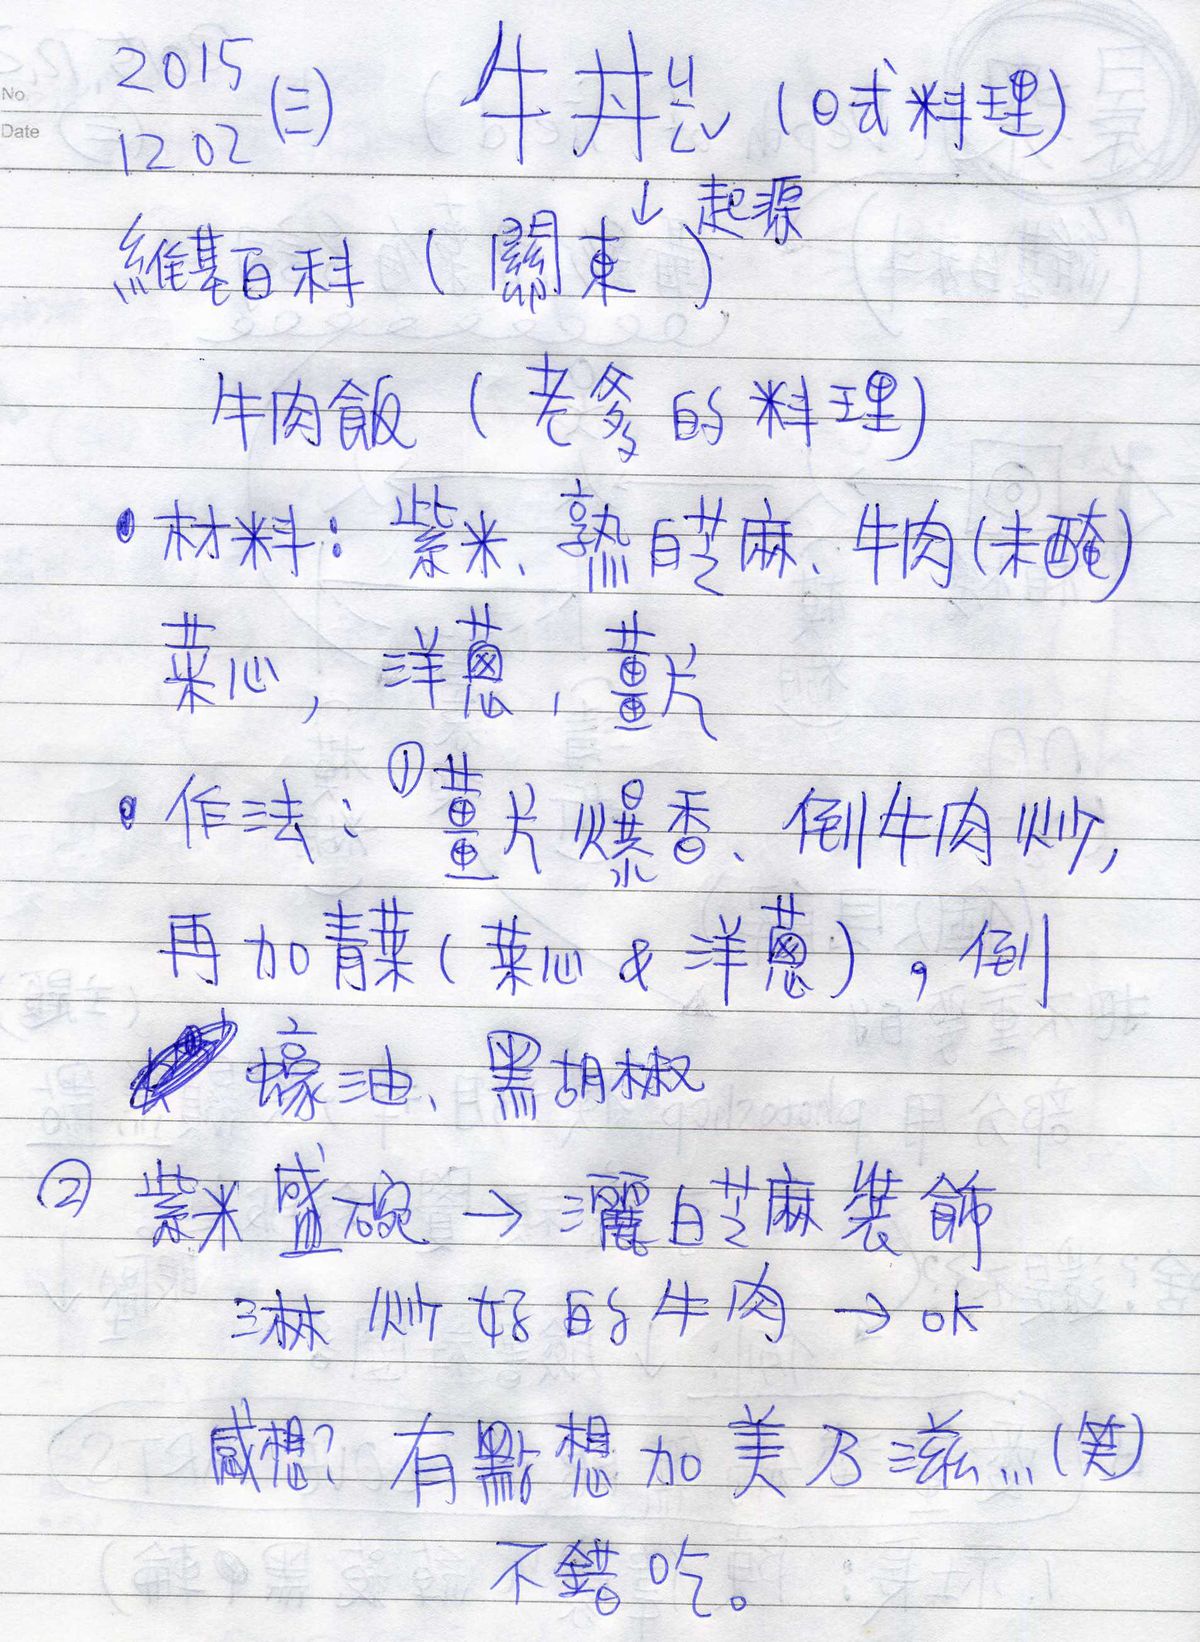 2015 1202 (三) 牛丼ㄐㄧㄥ (日式料理)
No.
Date
維基百科 (關東) ↓起源
牛肉飯 (老爹的料理)
• 材料: 紫米、熟白芝麻、牛肉(未醃)
菜心, 洋蔥, 薑片
• 作法: ①薑片爆香、倒牛肉炒,
再加青菜(菜心 & 洋蔥), 倒
蠔油、黑胡椒
② 紫米盛碗 → 灑白芝麻裝飾
淋炒好的牛肉 → ok
感想? 有點想加美乃滋...(笑)
不錯吃。